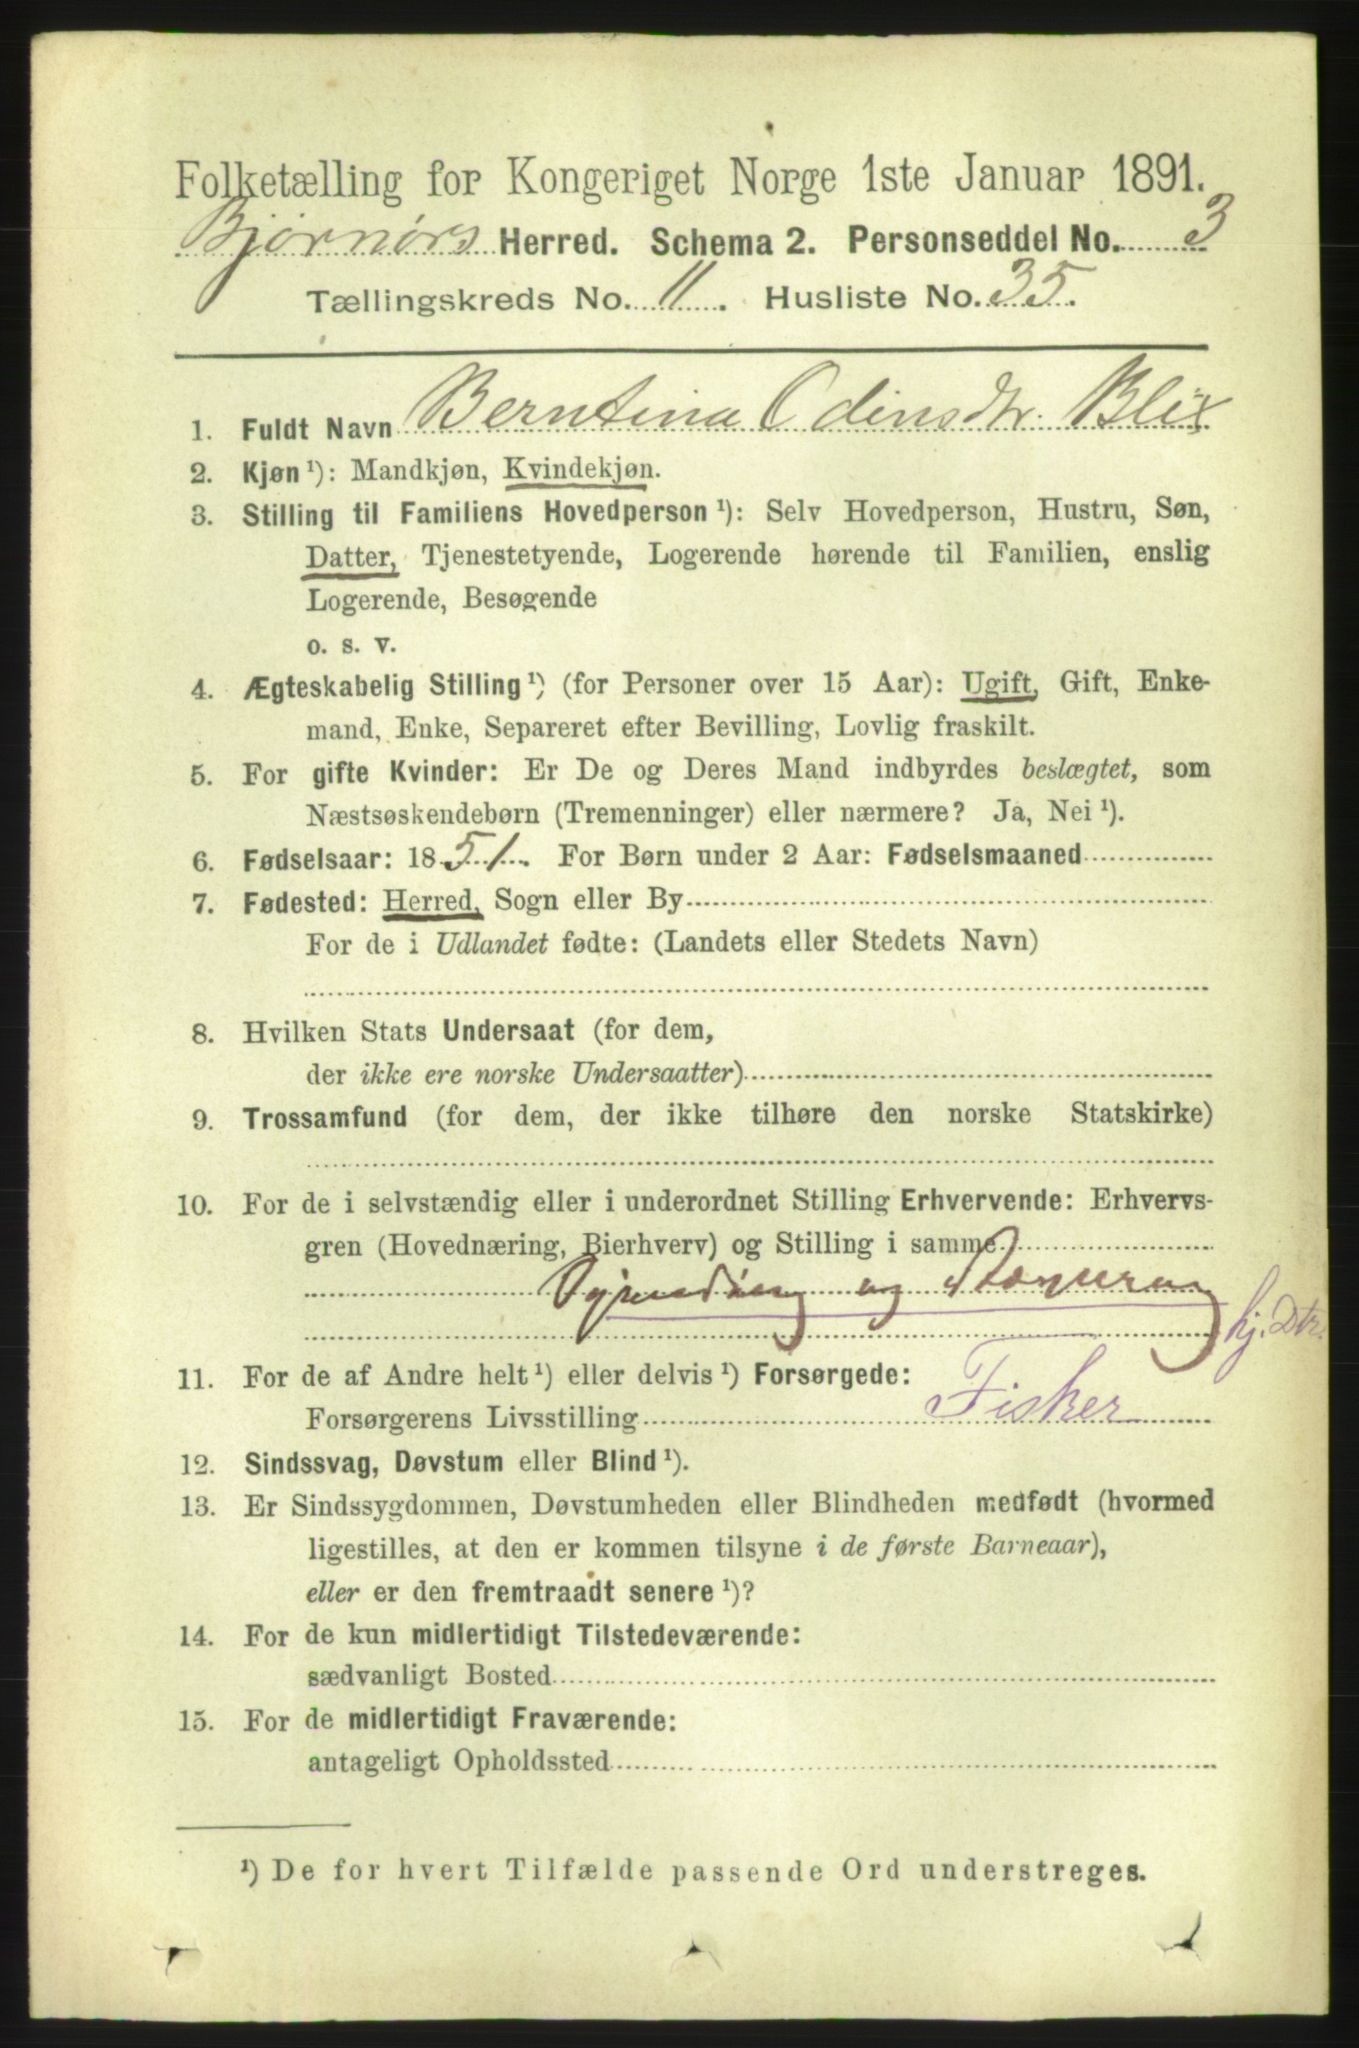 Folketælling for Kongeriget Norge 1ste Januar 1891.
Bjørnørs Herred. Schema 2. Personseddel No. 3
Tællingskreds No. 11. Husliste No. 35.
1. Fuldt Navn Berntina Odinsdtr. Blix
2. Kjøn ¹): Mandkjøn, Kvindekjøn.
3. Stilling til Familiens Hovedperson ¹): Selv Hovedperson, Hustru, Søn,
Datter, Tjenestetyende, Logerende hørende til Familien, enslig
Logerende, Besøgende
o. s. v.
4. Ægteskabelig Stilling ¹) (for Personer over 15 Aar): Ugift, Gift, Enke-
mand, Enke, Separeret efter Bevilling, Lovlig fraskilt.
5. For gifte Kvinder: Er De og Deres Mand indbyrdes beslægtet, som
Næstsøskendebørn (Tremenninger) eller nærmere? Ja, Nei ¹).
6. Fødselsaar: 1851. For Børn under 2 Aar: Fødselsmaaned
7. Fødested: Herred, Sogn eller By
For de i Udlandet fødte: (Landets eller Stedets Navn)
8. Hvilken Stats Undersaat (for dem,
der ikke ere norske Undersaatter)
9. Trossamfund (for dem, der ikke tilhøre den norske Statskirke)
10. For de i selvstændig eller i underordnet Stilling Erhvervende: Erhvervs-
gren (Hovednæring, Bierhverv) og Stilling i samme
og
hj. Dtr.
11. For de af Andre helt ¹) eller delvis ¹) Forsørgede:
Forsørgerens Livsstilling Fisker
12. Sindssvag, Døvstum eller Blind ¹).
13. Er Sindssygdommen, Døvstumheden eller Blindheden medfødt (hvormed
ligestilles, at den er kommen tilsyne i de første Barneaar),
eller er den fremtraadt senere ¹)?
14. For de kun midlertidigt Tilstedeværende:
sædvanligt Bosted
15. For de midlertidigt Fraværende:
antageligt Opholdssted
¹) De for hvert Tilfælde passende Ord understreges.